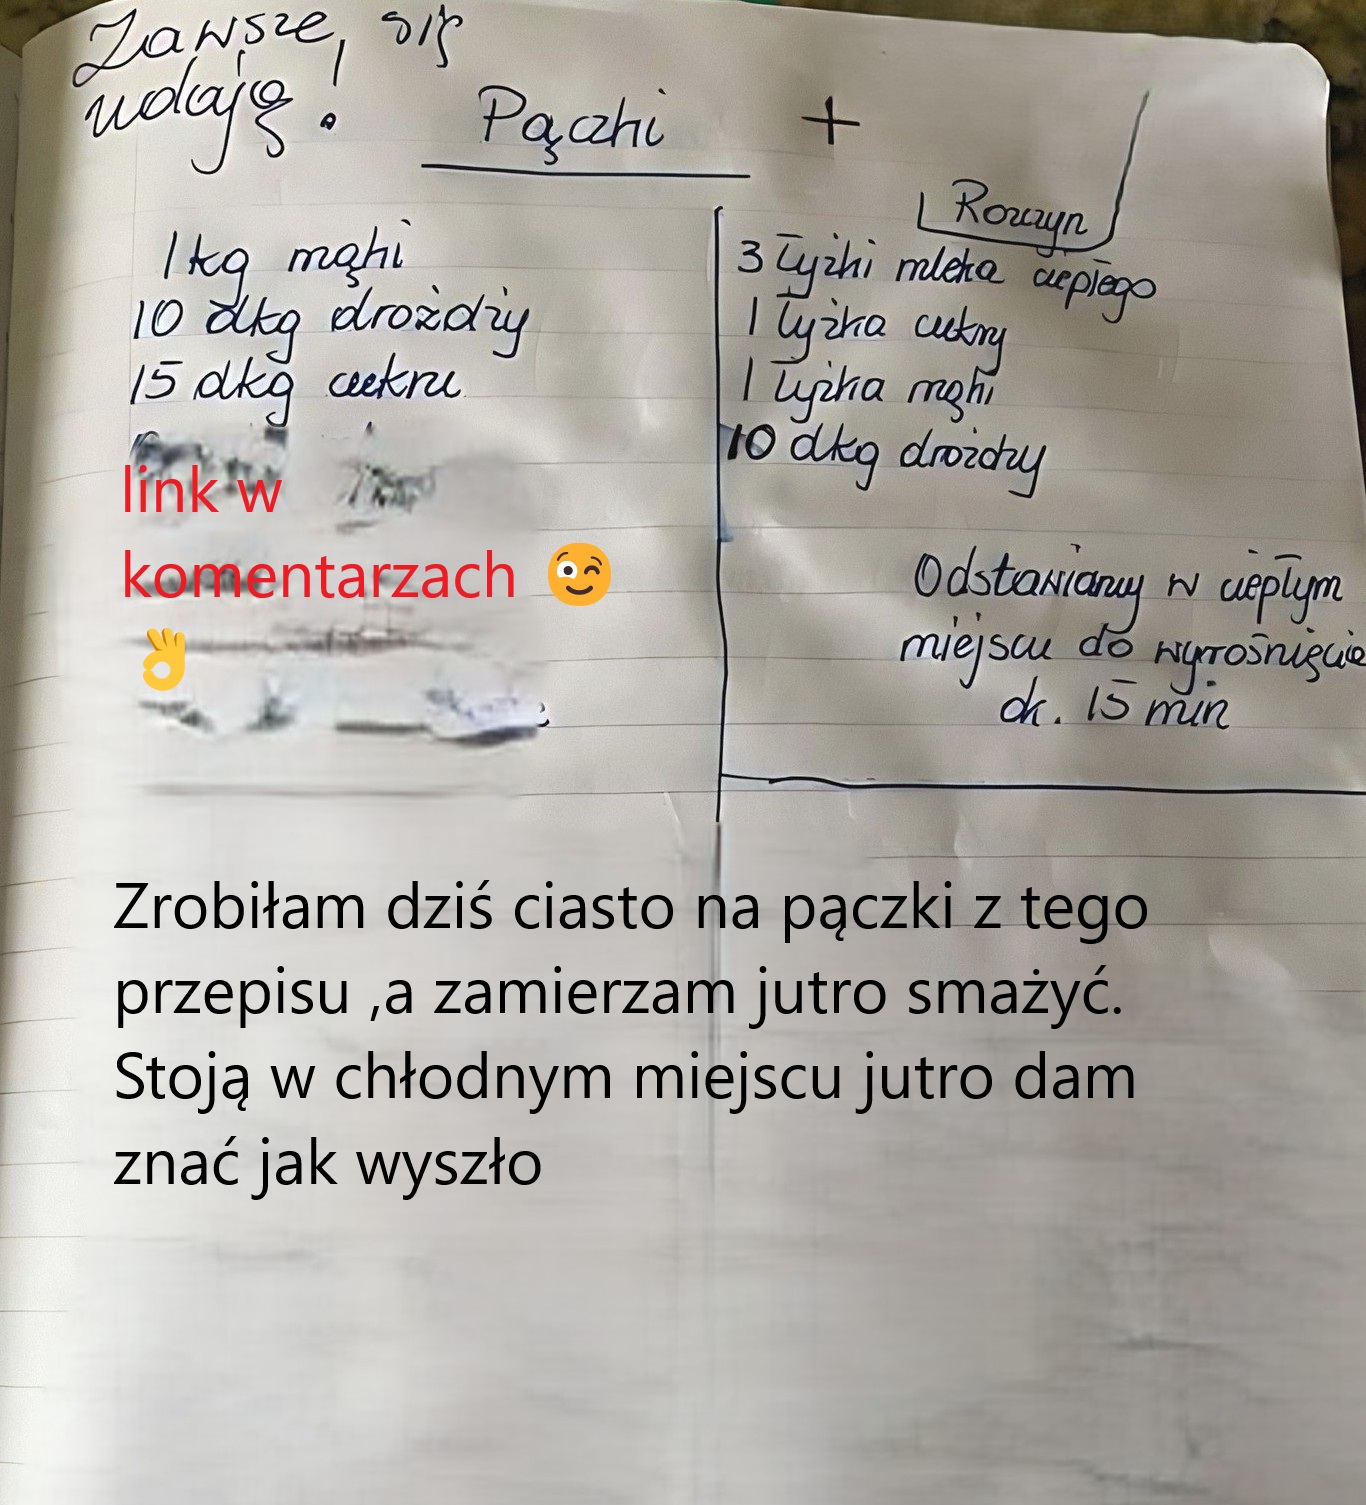 Zawsze, się
udają!
Pączki +
1 kg mąki
10 dkg drożdży
15 dkg cukru
Rozczyn
3 łyżki mleka ciepłego
1 łyżka cukry
1 łyżka mąki
10 dkg drożdży
Odstawiamy w ciepłym
miejscu do wyrośnięcia
ok. 15 min
link w
komentarzach 😉
👌
Zrobiłam dziś ciasto na pączki z tego
przepisu ,a zamierzam jutro smażyć.
Stoją w chłodnym miejscu jutro dam
znać jak wyszło